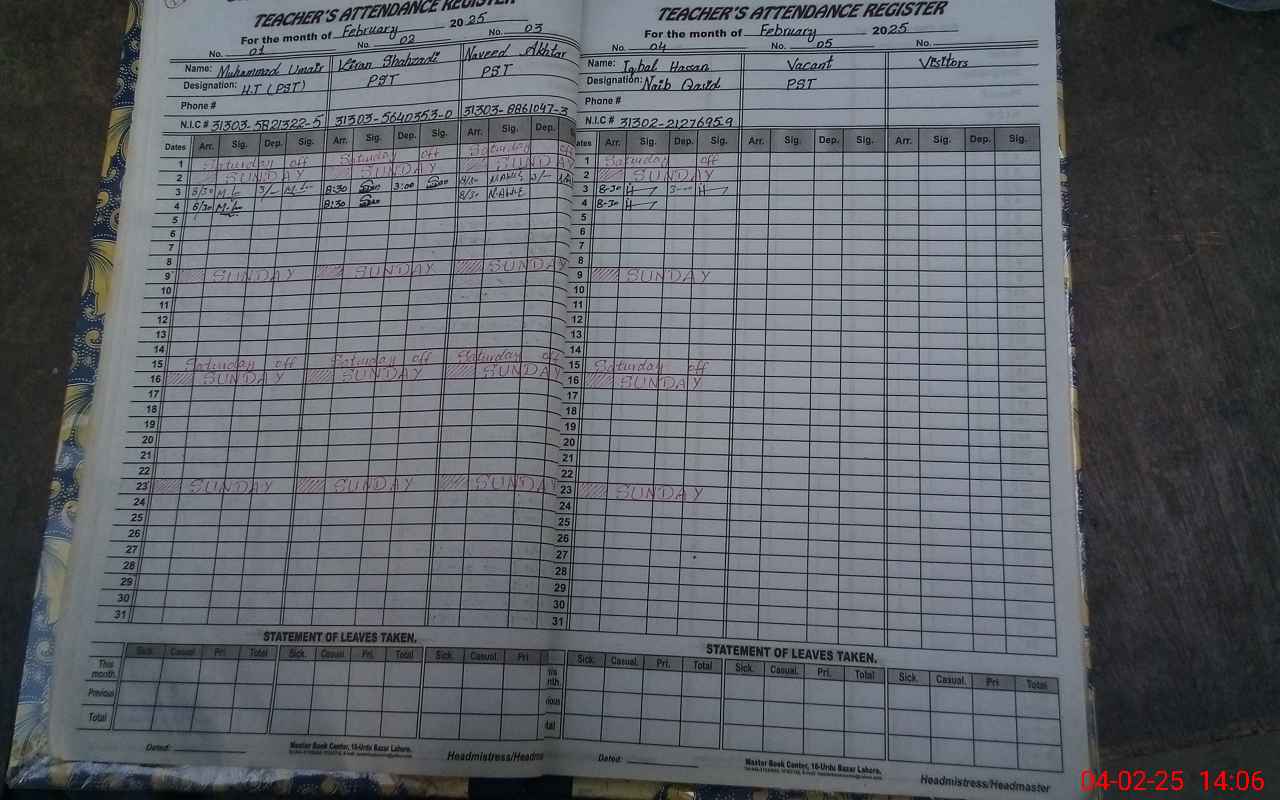 TEACHER'S ATTENDANCE REGISTER
For the month of February 2025
No. 01 No. 02 No. 03
Name: Muhammad Umair Kiran Shahzadi Naveed Akhtar
Designation: H.T (PST) PST PST
Phone #
N.I.C # 31303-5821322-5 31303-5640353-0 31303-8861047-3
Dates Arr. Sig. Dep. Sig. Arr. Sig. Dep. Sig. Arr. Sig. Dep.
1 Saturday off Saturday off Saturday off
2 SUNDAY SUNDAY SUNDAY
3 8/30 3/- 8:30 3:00
4 8/30 8:30 8/30
5
6
7
8
9 SUNDAY SUNDAY SUNDAY
10
11
12
13
14
15 Saturday off Saturday off Saturday off
16 SUNDAY SUNDAY SUNDAY
17
18
19
20
21
22
23 SUNDAY SUNDAY SUNDAY
24
25
26
27
28
29
30
31
STATEMENT OF LEAVES TAKEN.
Sick. Casual. Pri. Total Sick. Casual. Pri. Total Sick. Casual. Pri
This month.
Previous
Total
Dated:
Master Book Center, 16-Urdu Bazar Lahore.
Headmistress/Headma
TEACHER'S ATTENDANCE REGISTER
For the month of February 2025
No. 04 No. 05 No.
Name: Iqbal Hassan Vacant Visitors
Designation: Naib Qasid PST
Phone #
N.I.C # 31302-2127695-9
Dates Arr. Sig. Dep. Sig. Arr. Sig. Dep. Sig. Arr. Sig. Dep. Sig.
1 Saturday off
2 SUNDAY
3 8-30
4 8-30
5
6
7
8
9 SUNDAY
10
11
12
13
14
15 Saturday off
16 SUNDAY
17
18
19
20
21
22
23 SUNDAY
24
25
26
27
28
29
30
31
STATEMENT OF LEAVES TAKEN.
Sick. Casual. Pri. Total Sick. Casual. Pri. Total Sick. Casual. Pri Total
Dated:
Master Book Center, 16-Urdu Bazar Lahore.
Headmistress/Headmaster
04-02-25 14:06